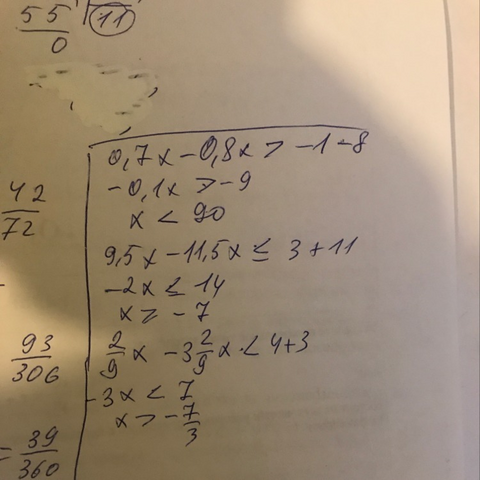 55 11
0
42
72
93
306
= 39
360
0,7x - 0,8x > -1 - 8
-0,1x > -9
x < 90
9,5x - 11,5x ≤ 3 + 11
-2x ≤ 14
x ≥ -7
2/9 x - 3 2/9 x < 4+3
-3x < 7
x > - 7/3